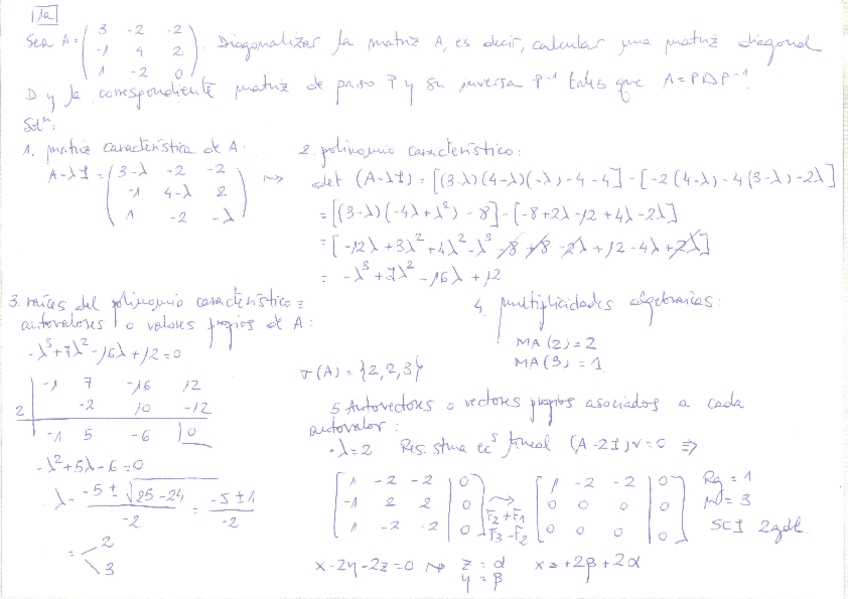 1)a
Sea A = ( 3 -2 -2
-1 4 2
1 -2 0 ). Diagonalizar la matriz A, es decir, calcular una matriz diagonal
D y la correspondiente matriz de paso P y su inversa P⁻¹ tales que A=PDP⁻¹.
Solⁿ:
1. matriz característica de A:
A-λI = ( 3-λ -2 -2
-1 4-λ 2
1 -2 -λ ) ⇝
2. polinomio característico:
det (A-λI) = [(3-λ)(4-λ)(-λ)-4-4] - [-2(4-λ)-4(3-λ)-2λ]
= [(3-λ)(-4λ+λ²)-8] - [-8+2λ-12+4λ-2λ]
= [-12λ+3λ²+4λ²-λ³-8+8-2λ+12-4λ+2λ]
= -λ³+7λ²-16λ+12
3. raíces del polinomio característico =
autovalores o valores propios de A:
-λ³+7λ²-16λ+12=0
-1 7 -16 12
2 -2 10 -12
-1 5 -6 0
-λ²+5λ-6=0
λ = -5±√25-24 / -2 = -5±1 / -2
= 2
3
4. multiplicidades algebraicas:
MA(2)=2
MA(3)=1
σ(A)={2,2,3}
5 Autovectores o vectores propios asociados a cada
autovalor:
·λ=2 Res. stma ecˢ lineal (A-2I)v=0 ⇒
[ 1 -2 -2 | 0
-1 2 2 | 0
1 -2 -2 | 0 ] ⇝ F₂+F₁ F₃-F₂ [ 1 -2 -2 | 0
0 0 0 | 0
0 0 0 | 0 ]
Rg = 1
n = 3
SCI 2gdl
x-2y-2z=0 ⇝ z=α x=+2β+2α
y=β